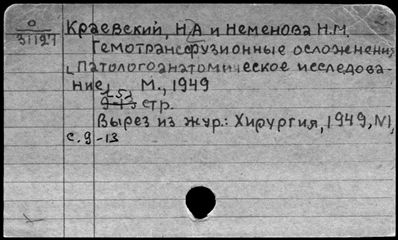 О
31127
Краевский, Н.А и Неменова Н.М.
Гемотрансфузионные осложнения
Патологоанатомическое исследова-
ние, М., 1949
стр.
Вырез из жур.: Хирургия, 1949, N1,
с. 9-13